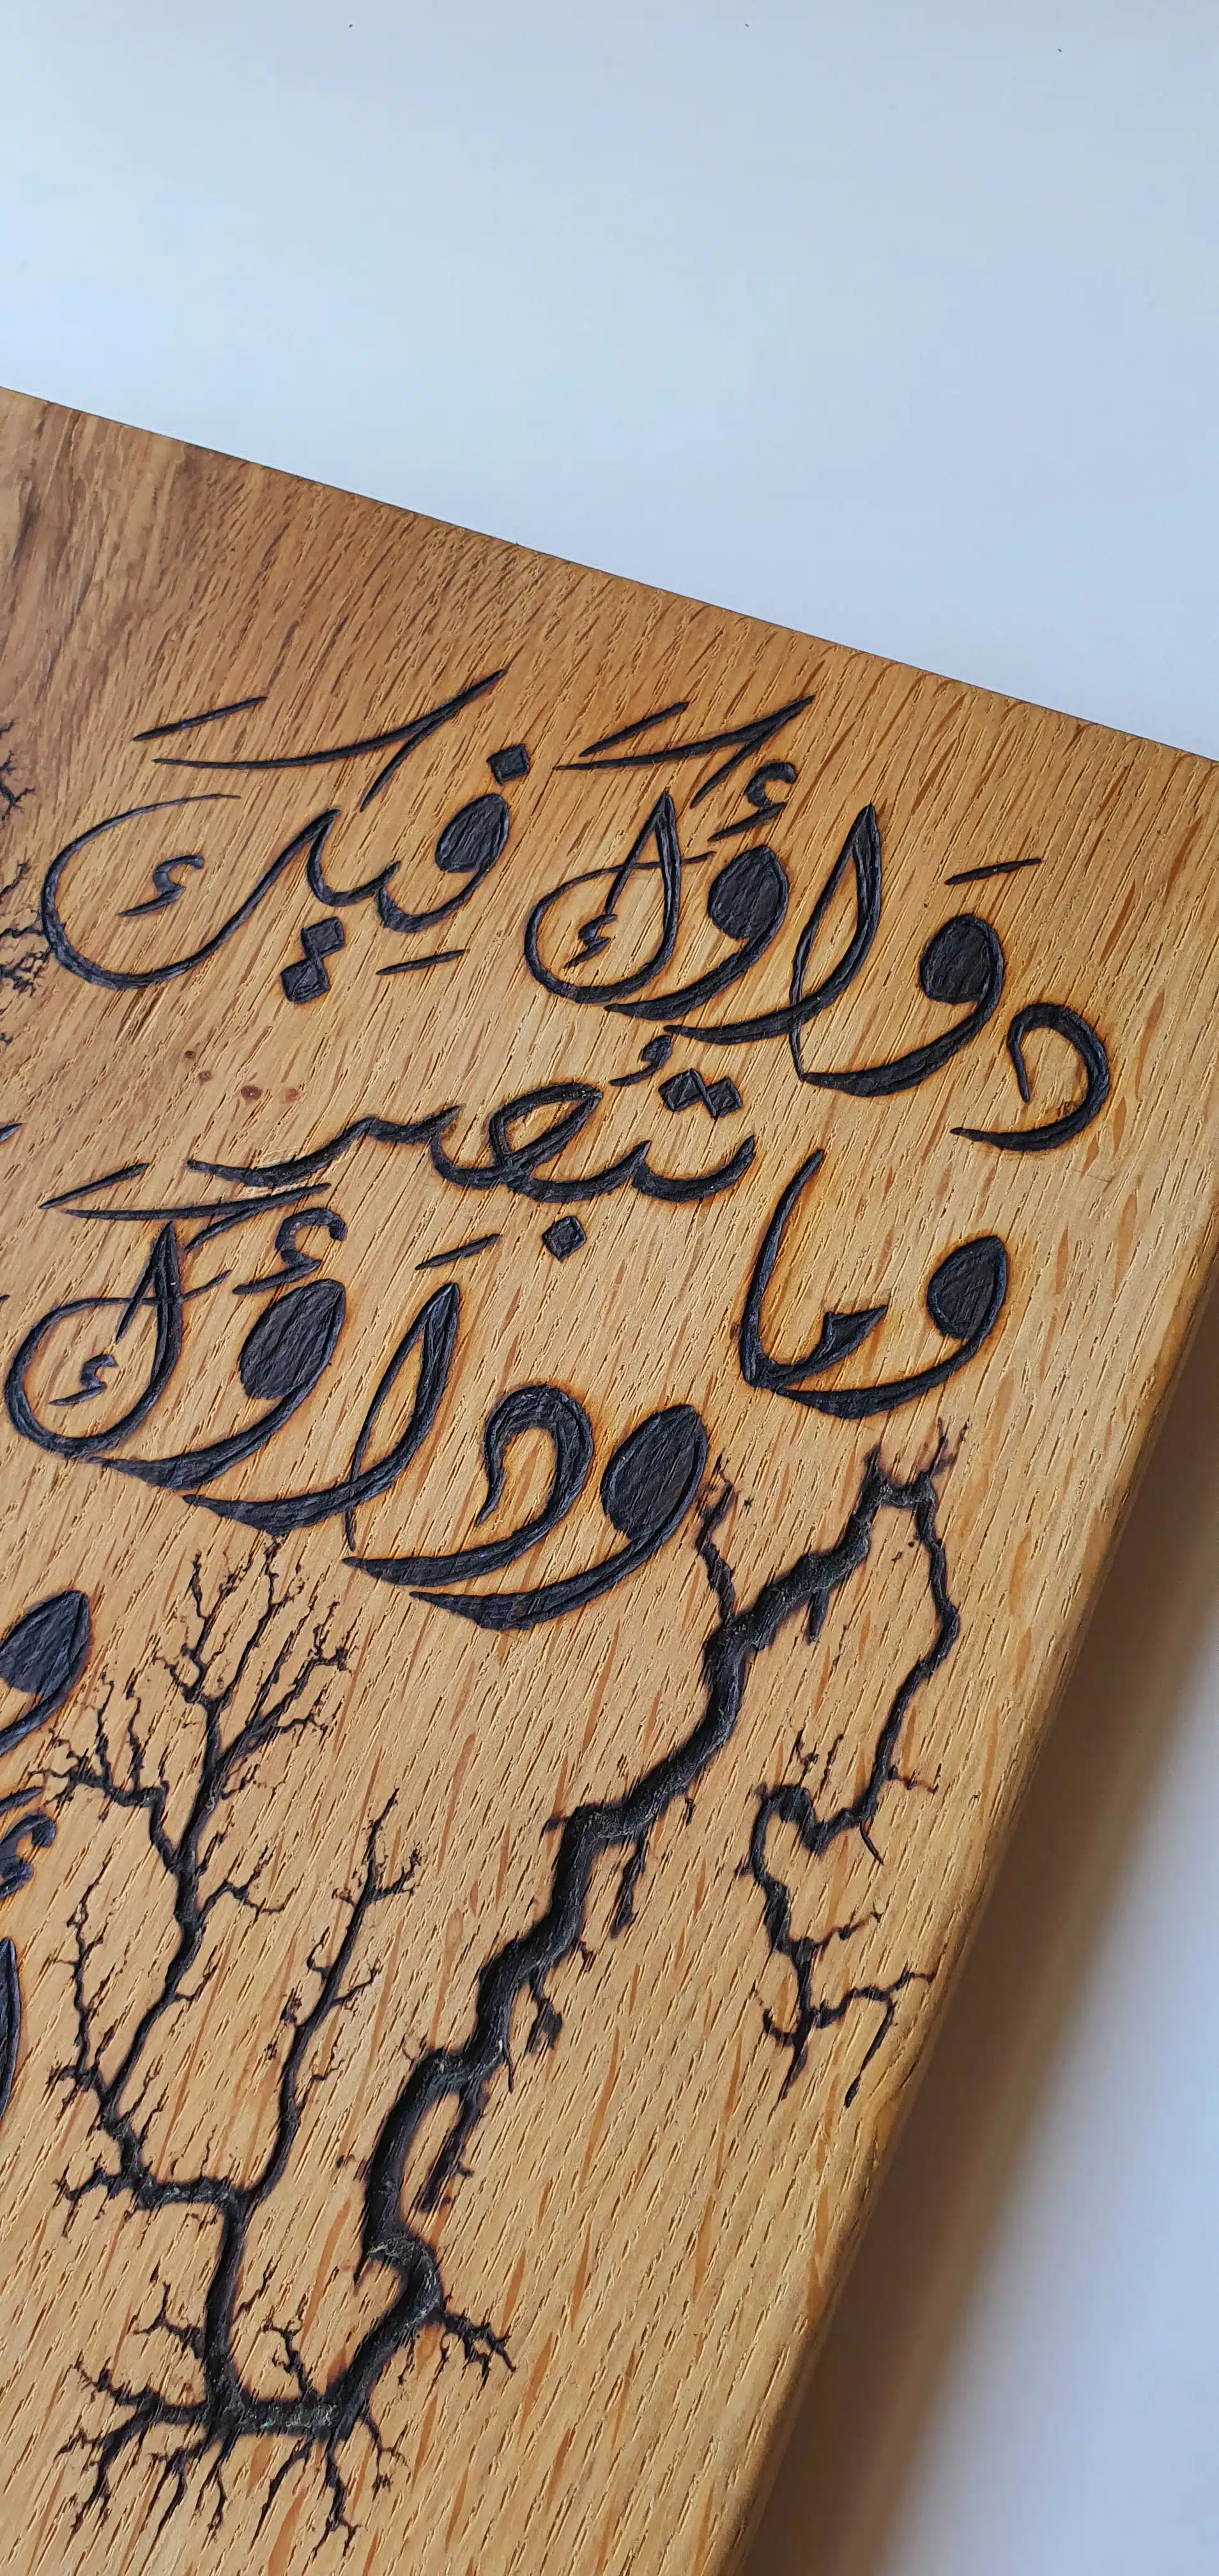 دَوَاؤُكَ فِيكَ
وما تُبصر
ودَاؤكَ